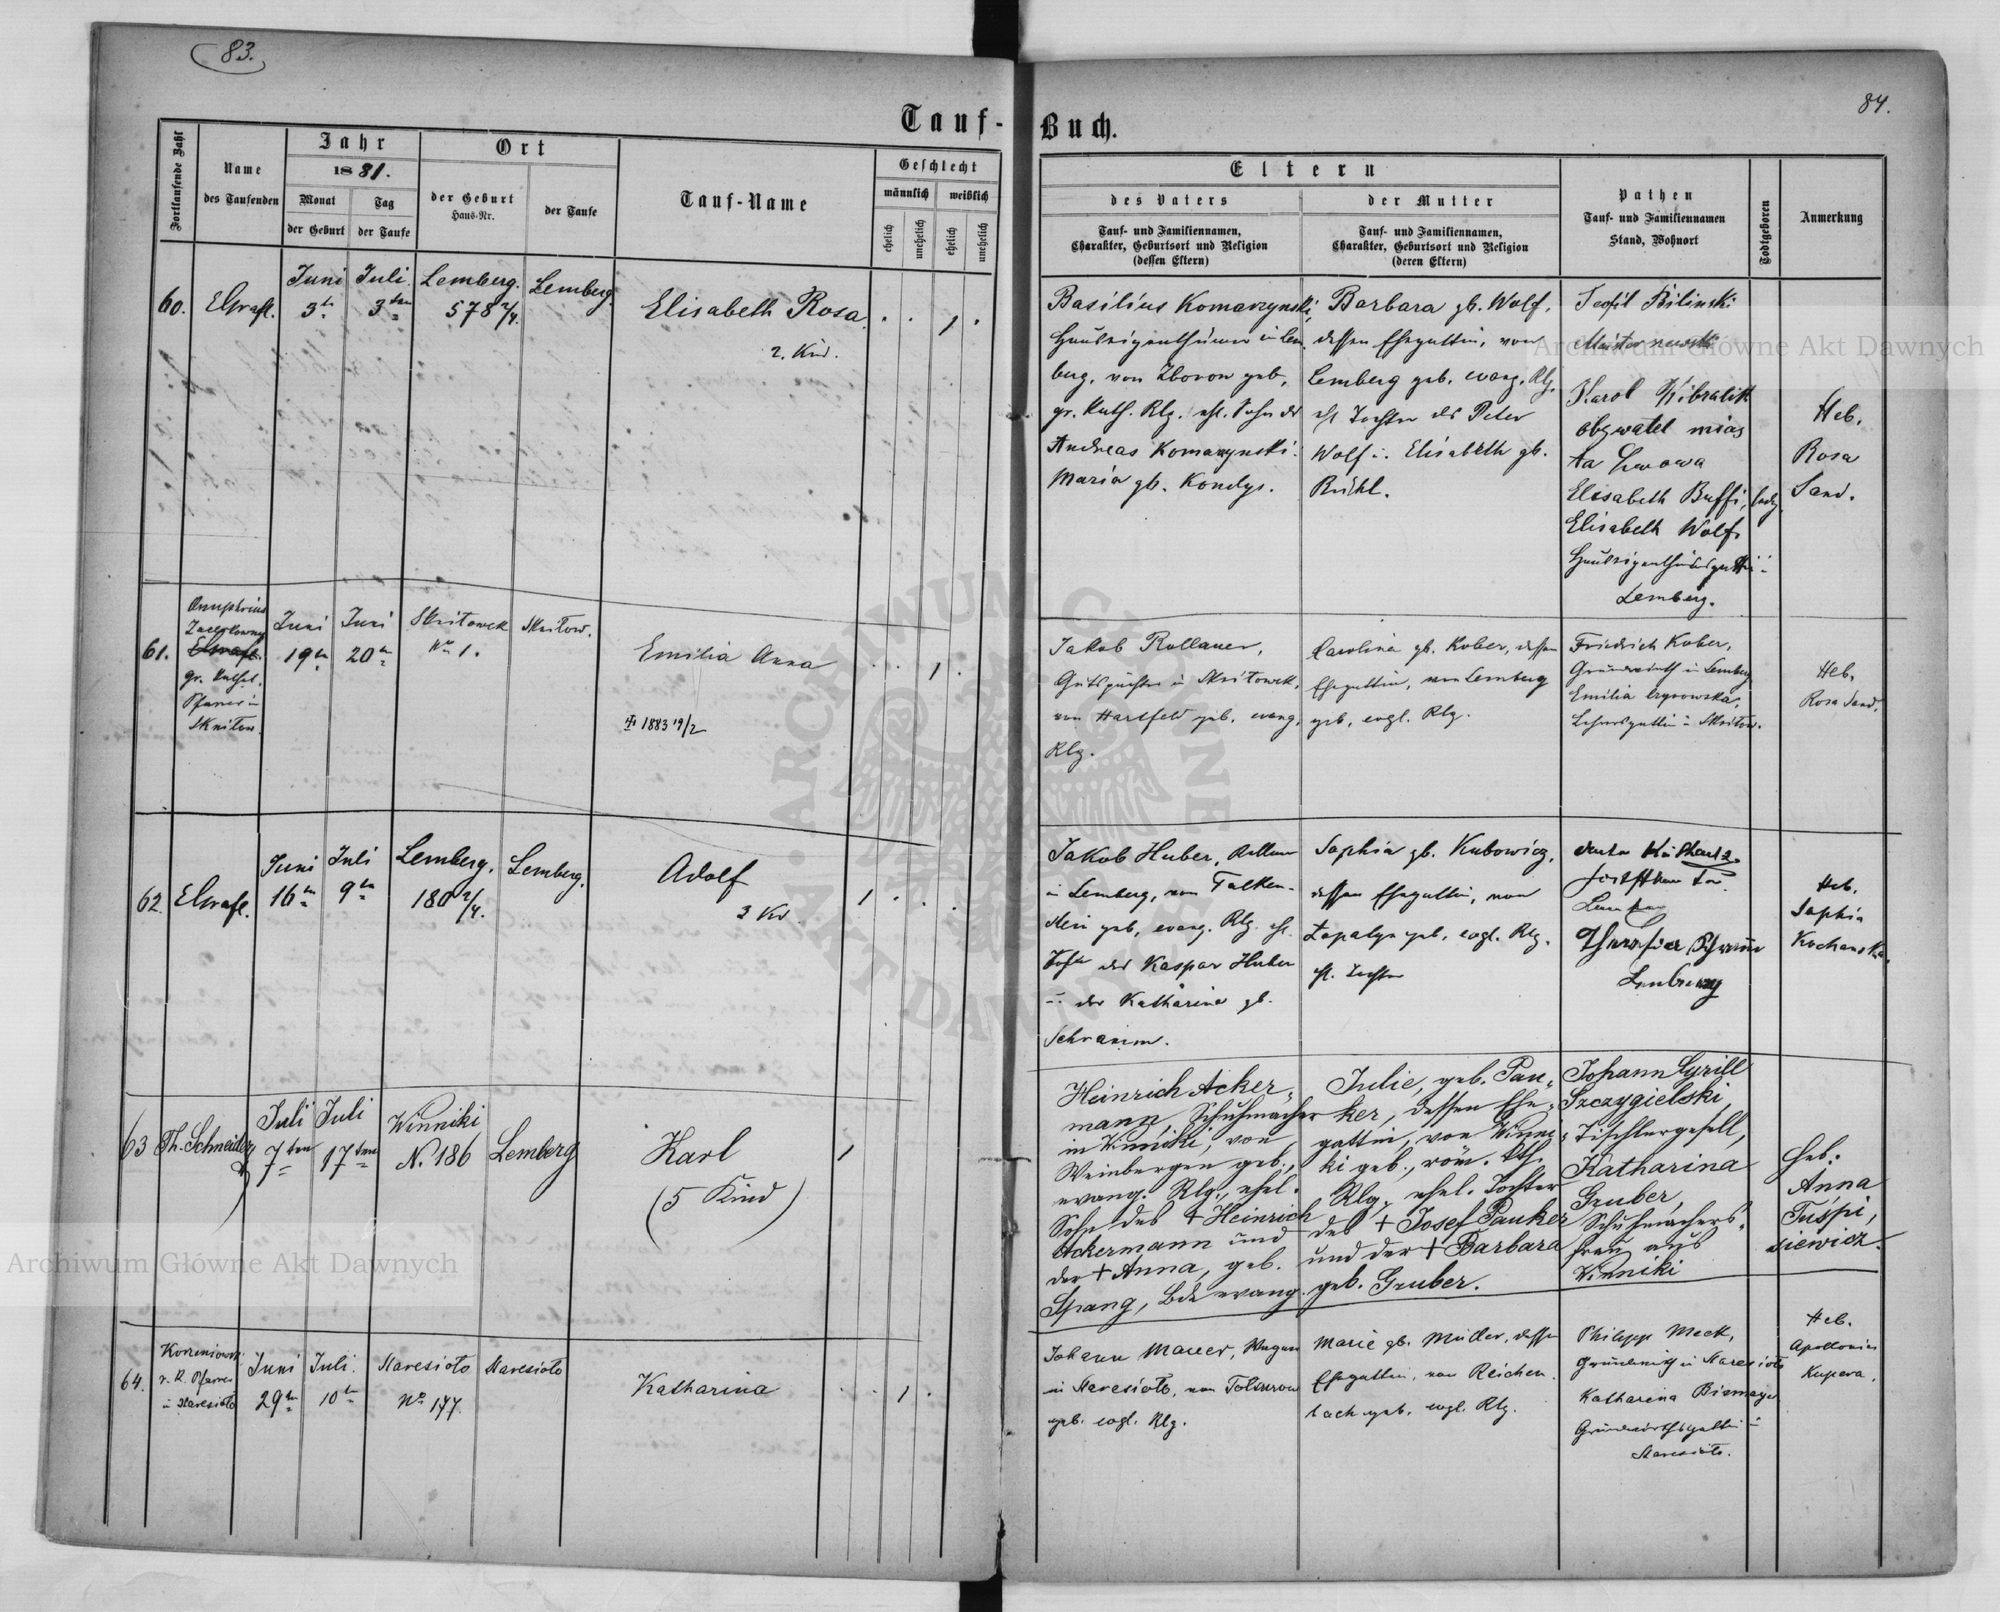 83.
84.
Tauf-Buch.
Fortlaufende Zahl
Name
des Taufenden
Jahr
1881.
Monat
der Geburt
Tag
der Taufe
Ort
der Geburt
Haus-Nr.
der Taufe
Tauf-Name
Geschlecht
männlich
weiblich
ehelich
unehelich
ehelich
unehelich
Eltern
des Vaters
Tauf- und Familiennamen,
Charakter, Geburtsort und Religion
(dessen Eltern)
der Mutter
Tauf- und Familiennamen,
Charakter, Geburtsort und Religion
(deren Eltern)
Pathen
Tauf- und Familiennamen
Stand, Wohnort
Todtgeboren
Anmerkung
60.
Juni
5t
Juli
3ten
Lemberg.
578 2/4.
Lemberg
Elisabeth Rosa
2. Kind.
Basilius Komarzynski,
Hauseigenthümer in Lem-
berg, von Zborow geb,
gr. kath. Rlg. ehl. Sohn des
Andreas Komarzynski
Maria gb. Kondys.
Barbara gb. Wolf,
dessen Ehegattin, von
Lemberg geb. evang. Rlg.
ehl Tochter des Peter
Wolf u. Elisabeth gb.
Rühl.
Teofil Bilinski
Karol
obywatel mias
ta Lwowa
Elisabeth
Elisabeth Wolf,
Lemberg.
Heb.
Rosa
Sand.
61.
gr. kathol.
Pfarrer in
Sknitow.
Juni
19t
Juni
20t
Sknitowek
Nr 1.
Sknitow.
Emilia Anna
1883 19/2
Jakob Rollauer,
Gutspächter in Sknitowek,
von Hartfeld geb, evang.
Rlg.
Carolina gb. Kober, dessen
Ehegattin, von Lemberg
geb, evgl. Rlg.
Friedrich Kober,
Grundwirth in Lemberg
Emilia
in Sknitow.
Heb.
Rosa Sand.
62.
Juni
16t
Juli
9t
Lemberg.
180 2/4.
Lemberg.
Adolf
3 Kd.
Jakob Huber,
in Lemberg, von Falken-
stein geb, evang. Rlg. ehl.
Sohn des Kaspar Huber
u. der Katharina gb.
Schramm.
Sophia gb. Kubowicz,
dessen Ehegattin, von
geb, evgl. Rlg.
ehl. Tochter
Lemberg
Heb.
Sophia
Kochanska.
63
Th. Schneider
Juli
7ten
Juli
17ten
Winniki
N. 186
Lemberg
Karl
(5 Kind)
Heinrich Acker-
mann, Schuhmacher
in Winniki, von
Weinbergen geb.,
evang. Rlg., ehel.
Sohn des + Heinrich
Ackermann und
der + Anna, geb.
Spang, Bde evang.
Julie, geb. Pau-
ker, dessen Ehe-
gattin, von Winni-
ki geb., röm. kth.
Rlg, ehel. Tochter
des + Josef Pauker
und der + Barbara
geb. Gruber.
Johann Cyrill
Szczygielski,
Tischlergesell,
Katharina
Gruber,
Schuhmachers-
frau aus
Winniki
Heb:
Anna
64.
r. k. Pfarrer
in Staresioło
Juni
29t
Juli.
10t
Staresioło
No 177.
Staresioło
Katharina
Johann Mauer,
in Staresioło, von
geb. evgl. Rlg.
Marie gb. Müller, dessen
Ehegattin, von Reichen-
bach geb, evgl. Rlg.
Philipp Meck,
Grundwirth in Staresioło
Katharina Bismayer
Grundwirthsgattin in
Staresioło.
Heb.
Apollonia
Kupera.
Archiwum Główne Akt Dawnych
Archiwum Główne Akt Dawnych
ARCHIWUM GŁÓWNE AKT DAWNYCH